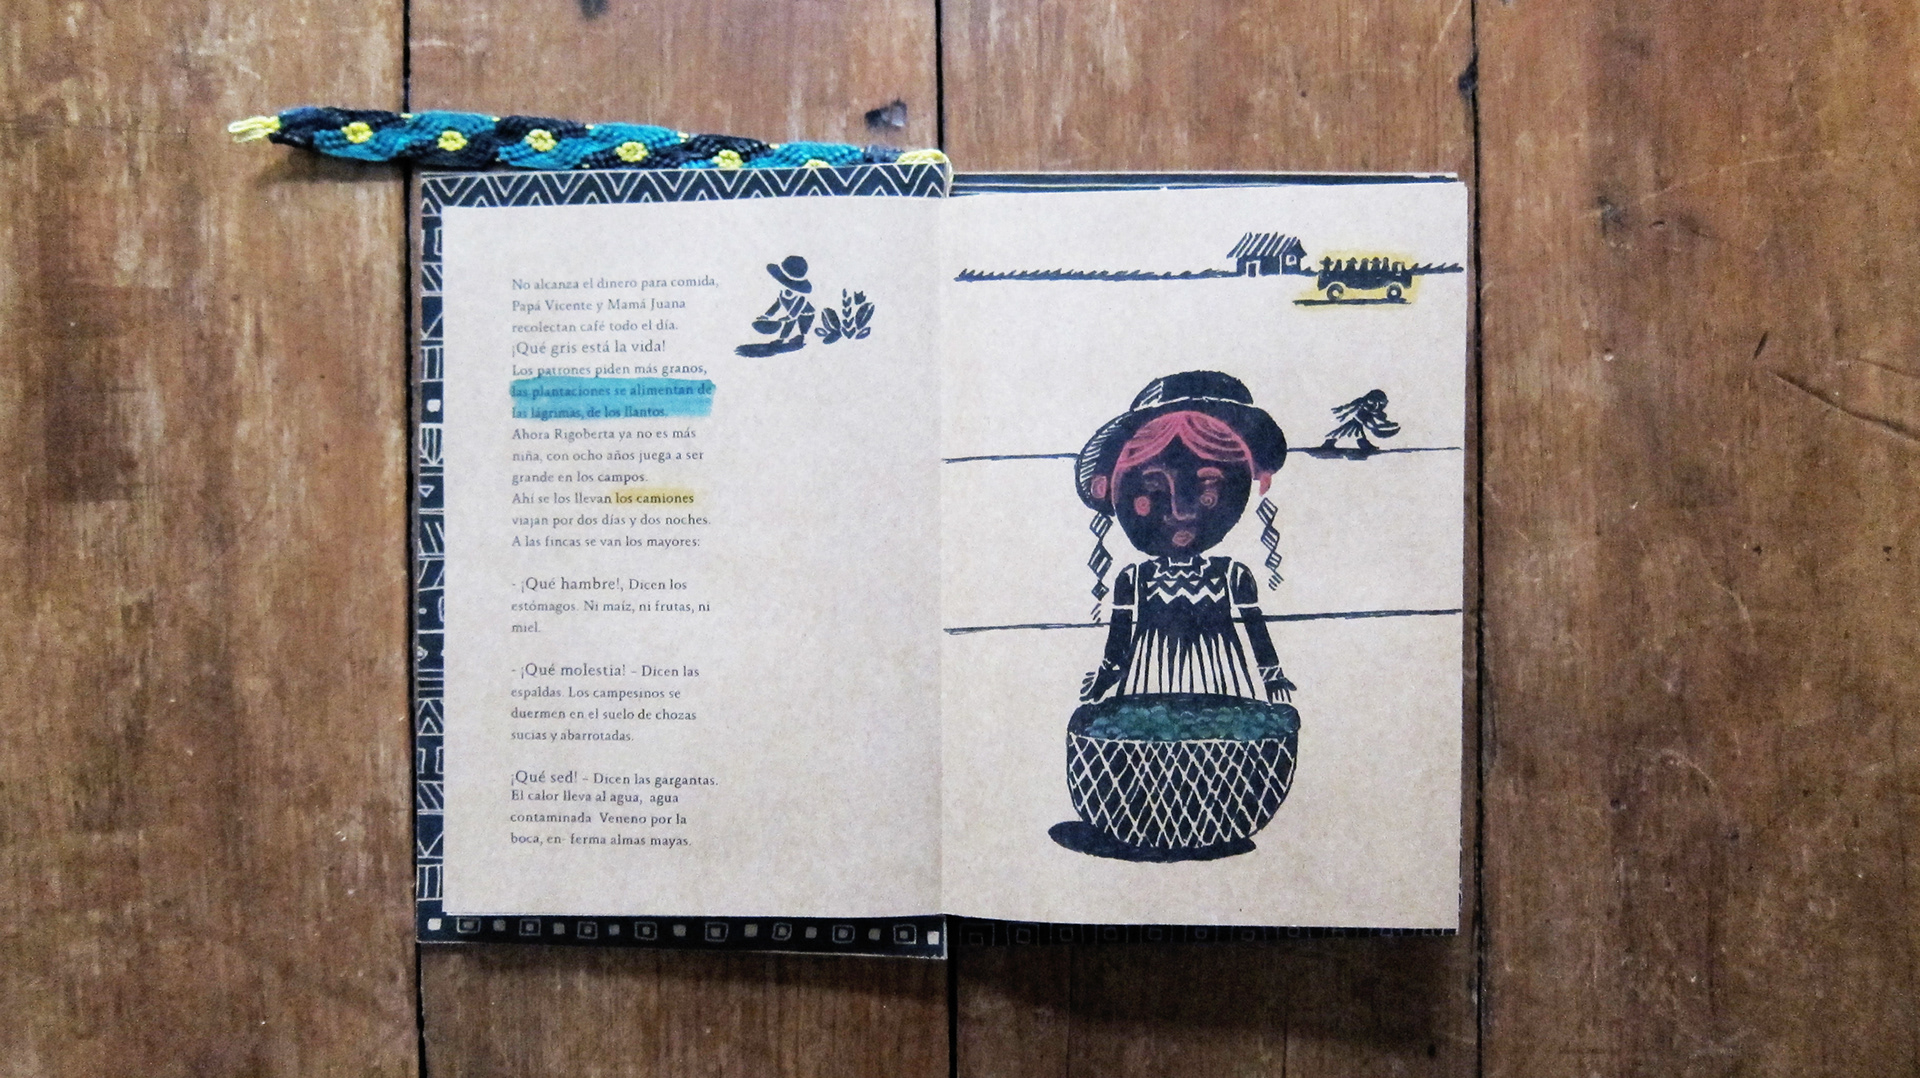 No alcanza el dinero para comida,
Papá Vicente y Mamá Juana
recolectan café todo el día.
¡Qué gris está la vida!
Los patrones piden más granos,
las plantaciones se alimentan de
las lágrimas, de los llantos.
Ahora Rigoberta ya no es más
niña, con ocho años juega a ser
grande en los campos.
Ahí se los llevan los camiones
viajan por dos días y dos noches.
A las fincas se van los mayores:
- ¡Qué hambre!, Dicen los
estómagos. Ni maíz, ni frutas, ni
miel.
- ¡Qué molestia! – Dicen las
espaldas. Los campesinos se
duermen en el suelo de chozas
sucias y abarrotadas.
¡Qué sed! – Dicen las gargantas.
El calor lleva al agua, agua
contaminada Veneno por la
boca, en- ferma almas mayas.